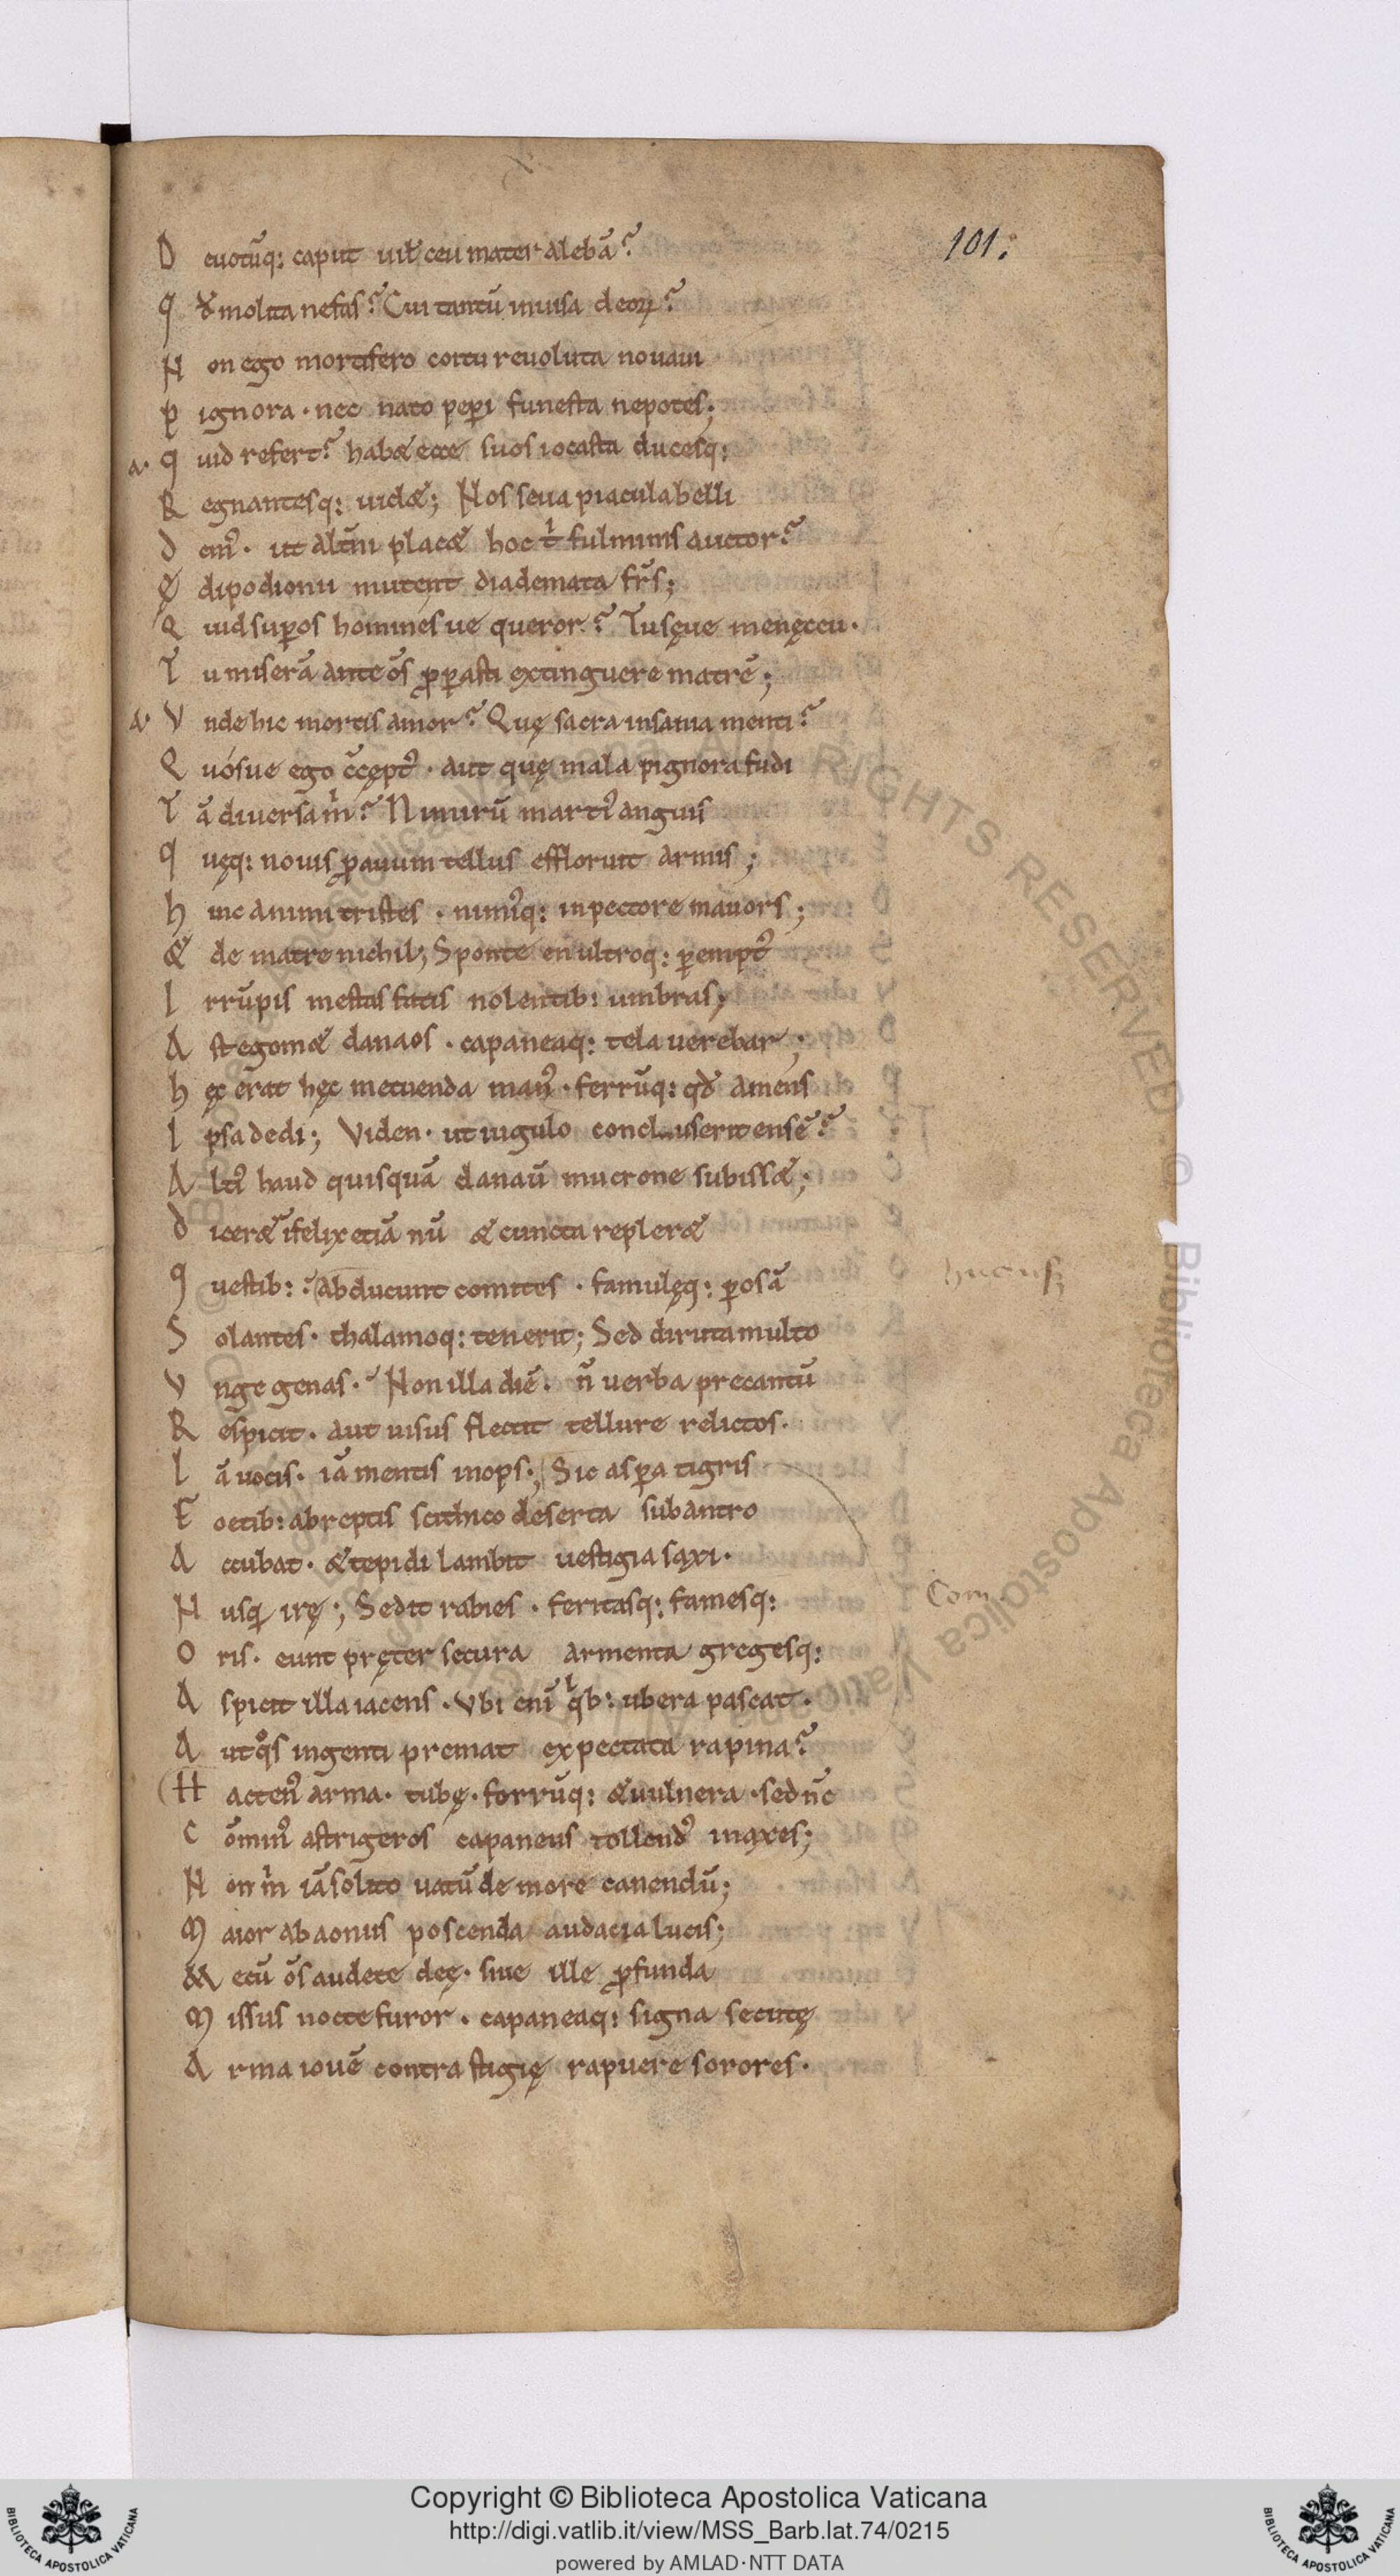 101.
D euotūq: caput uil̄ ceu mater alebā?
q d̄ molita nefas? Cui tantū inuisa deoꝝ?
N on ego mortifero coitu reuoluta nouaui
p ignora · nec nato peꝑi funesta nepotes;
a· q uid refert? habæ ecce suos iocasta ducesq:
R egnantesq: uidæ; Nos seua piacula belli
D em᷒ · ut alt̄ni placæ hoc t̍ fulminis auctor?
Ę dipodionii mutent diademata fr̄s;
Q uid suꝑos homines ue queror? Tu sęue menęceu ·
T u miserā ante ōs ꝓꝑasti extinguere matrē;
d· V nde hic mortis amor? Quę sacra insania menti?
Q uósue ego c̄cępt᷒ · aut quę mala pignora fudi
T ā diuersa m̍? Nimirū marti᷒ anguis
q uęq: nouis ꝓauum tellus effloruit armis;
h inc animi tristes · nimi᷒q: in pectore mauors;
Æ de matre nichil; Sponte en ultroq: ꝑempt᷒
I rrūpis mestas fatis nolentib: umbras;
A st ego mæ danaos · capaneaq: tela uerebar;
h ęc erat hęc metuenda man᷒ · ferrūq: qd̄ amens
I psa dedi; Viden · ut iugulo concluserit ensē?
A lti᷒ haud quisquā danaū mucrone subissæ;
D iceræ īfelix etiā nū æ cuncta replerę
q uestib:? Abducunt comites · famulęq: ꝑosā
S olantes · thalamoq: tenent; Sed diruta multo
hucusq;
V nge genas · Non illa diē · n̄ uerba precantū
R espicit · aut uisus flectit tellure relictos ·
I ā uocis · iā mentis inops; Sic asꝑa tigris
F oetib: abreptis scithico deserta sub antro
A ccubat · æ tepidi lambit uestigia saxi ·
N usqꝫ irę; Sedit rabies · feritasq: famesq:
Com.
O ris · eunt pręter secura armenta gregesq:
A spicit illa iacens · Vbi eni̅ q̍b: ubera pascat ·
A ut q°s ingenti premat expectata rapina?
H acten᷒ arma · tubę · ferrūq: æ uulnera · sed nc̄
C ōmin᷒ astrigeros capaneus tollend᷒ in axes;
N on m̍ iā solito uatū de more canendū;
M aior ab aoniis poscenda audacia lucis;
M ecū ōs audete deę · siue ille ꝓfunda
M issus nocte furor · capaneaq: signa secutę
A rma iouē contra stigię rapuere sorores ·
Copyright © Biblioteca Apostolica Vaticana
http://digi.vatlib.it/view/MSS_Barb.lat.74/0215
powered by AMLAD·NTT DATA